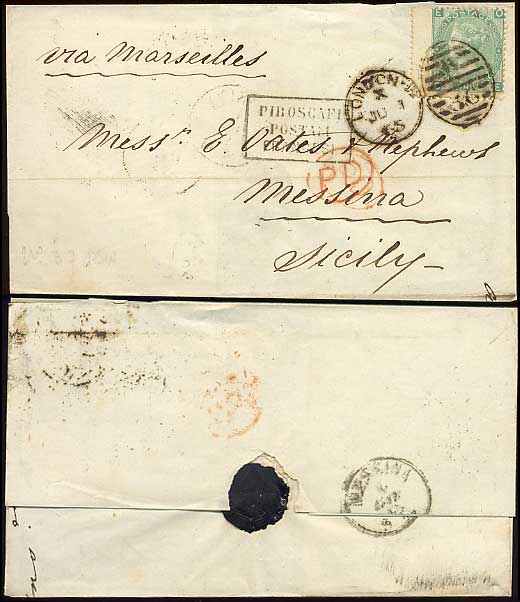 E O
POSTAGE
via Marseilles
LONDON
X
JU 1
65
36
PIROSCAFI
POSTALI
Messrs E. Oates & Nephews
PD
Messina
Sicily
MESSINA